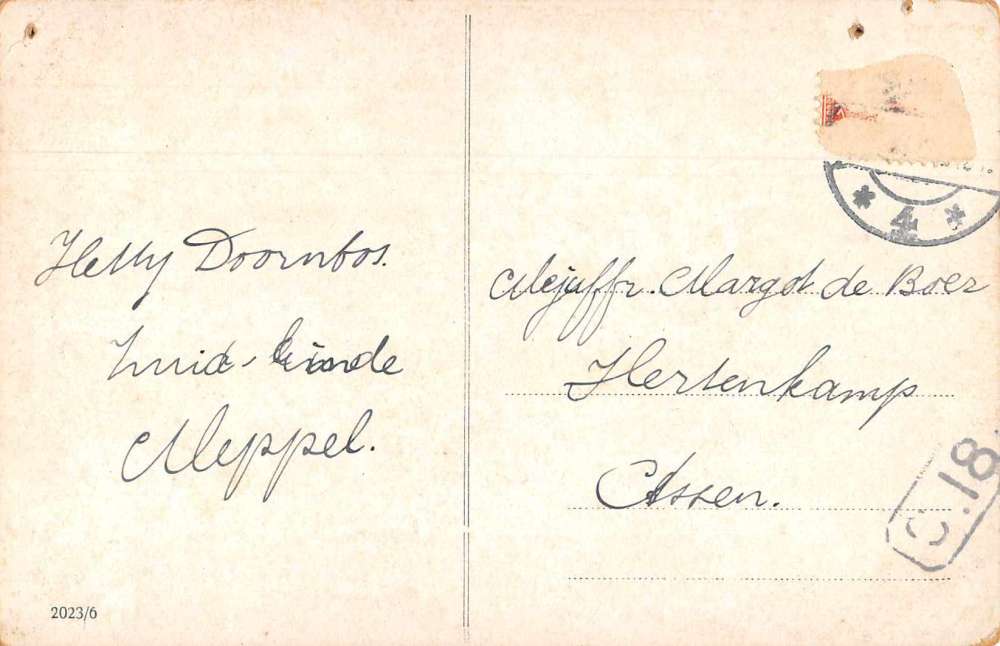 Helly Doornbos.
Zuid-Einde
Meppel.
2023/6
4
Mejuffr. Margot de Boer
Hertenkamp
Assen.
C.18